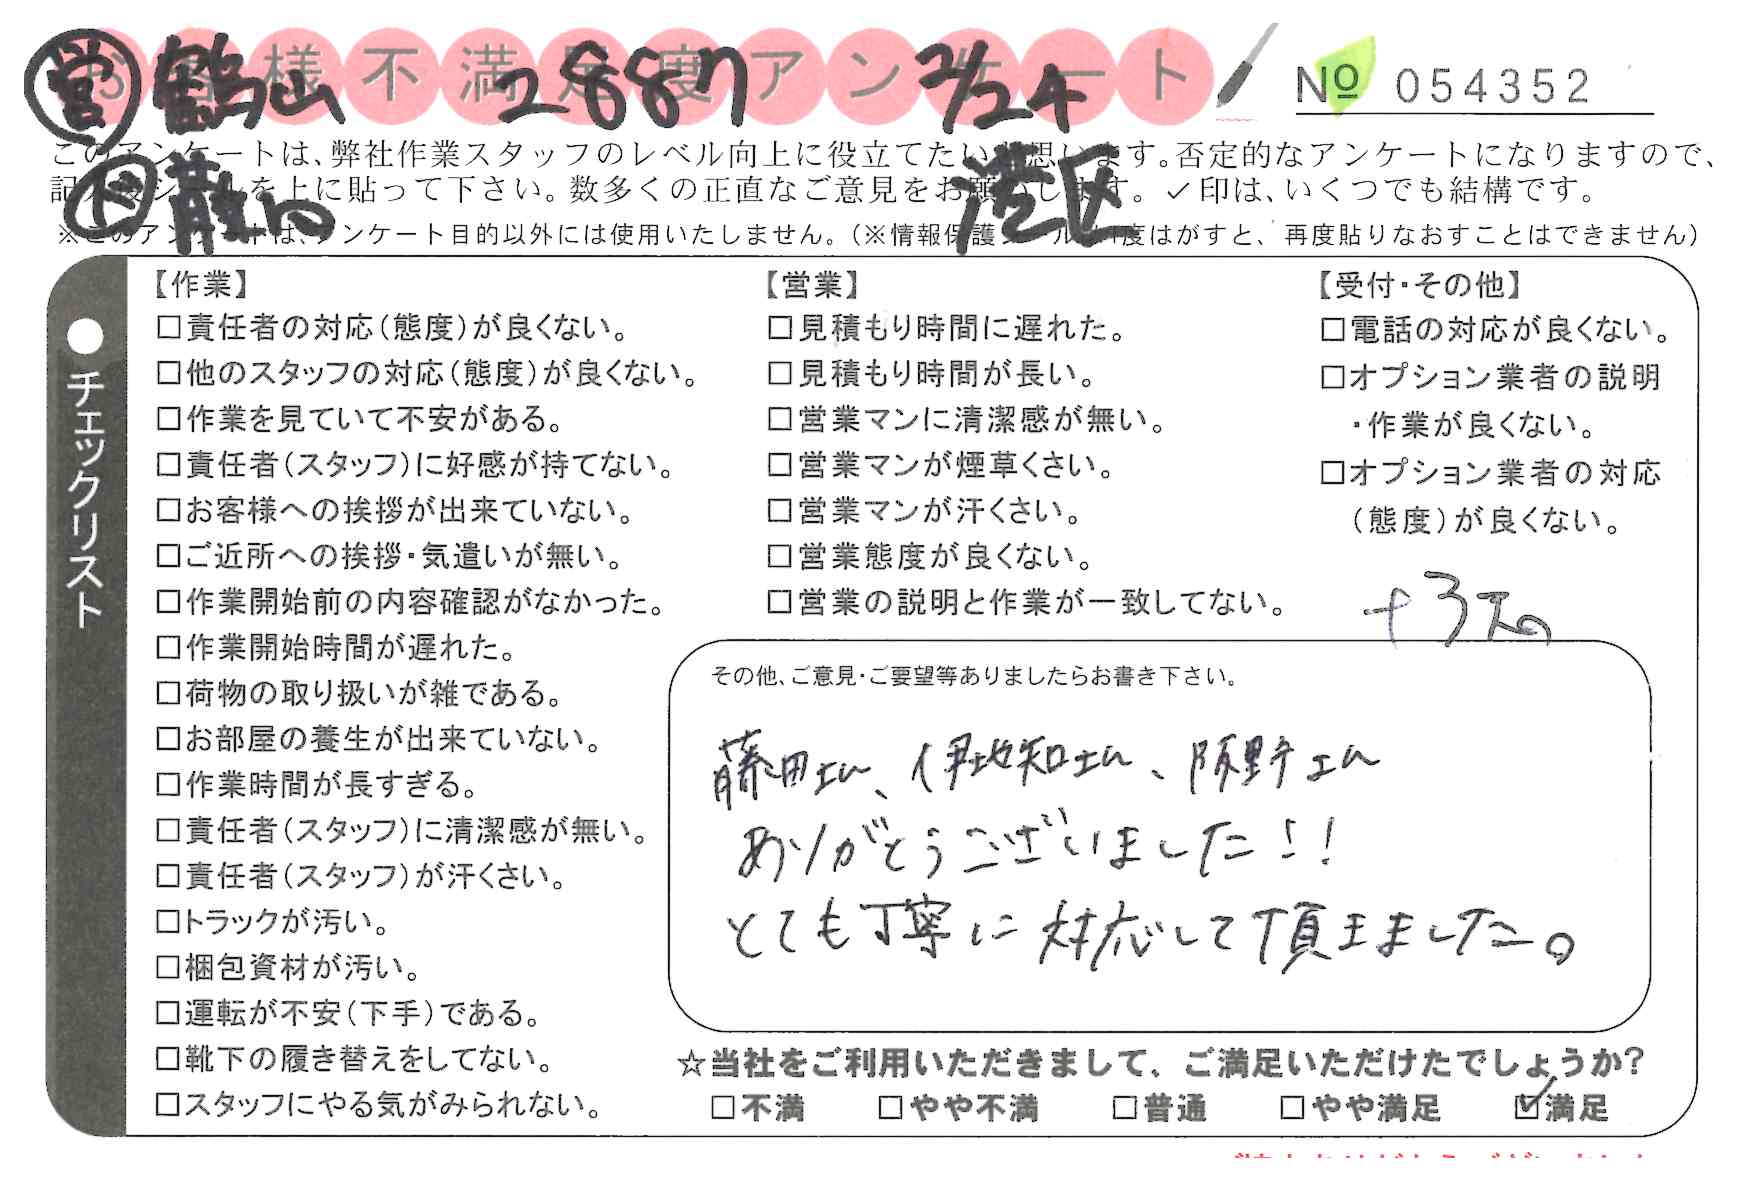 お客様不満足度アンケート
営 鶴山 2887 2/24
No 054352
このアンケートは、弊社作業スタッフのレベル向上に役立てたいと思います。否定的なアンケートになりますので、
記入後シールを上に貼って下さい。数多くの正直なご意見をお願いします。✓印は、いくつでも結構です。
港区
※このアンケートは、アンケート目的以外には使用いたしません。(※情報保護シールは1度はがすと、再度貼りなおすことはできません)
●チェックリスト
【作業】
□責任者の対応(態度)が良くない。
□他のスタッフの対応(態度)が良くない。
□作業を見ていて不安がある。
□責任者(スタッフ)に好感が持てない。
□お客様への挨拶が出来ていない。
□ご近所への挨拶・気遣いが無い。
□作業開始前の内容確認がなかった。
□作業開始時間が遅れた。
□荷物の取り扱いが雑である。
□お部屋の養生が出来ていない。
□作業時間が長すぎる。
□責任者(スタッフ)に清潔感が無い。
□責任者(スタッフ)が汗くさい。
□トラックが汚い。
□梱包資材が汚い。
□運転が不安(下手)である。
□靴下の履き替えをしてない。
□スタッフにやる気がみられない。
【営業】
□見積もり時間に遅れた。
□見積もり時間が長い。
□営業マンに清潔感が無い。
□営業マンが煙草くさい。
□営業マンが汗くさい。
□営業態度が良くない。
□営業の説明と作業が一致してない。
【受付・その他】
□電話の対応が良くない。
□オプション業者の説明
・作業が良くない。
□オプション業者の対応
(態度)が良くない。
その他、ご意見・ご要望等ありましたらお書き下さい。
藤田さん、伊地知さん、阪野さん
ありがとうございました!!
とても丁寧に対応して頂きました。
☆当社をご利用いただきまして、ご満足いただけたでしょうか?
□不満 □やや不満 □普通 □やや満足 ☑満足